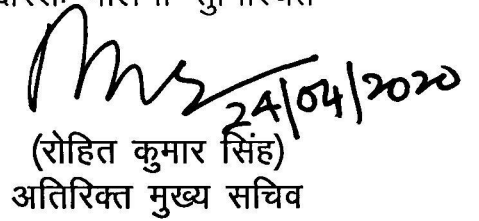 24/04/2020
(रोहित कुमार सिंह)
अतिरिक्त मुख्य सचिव